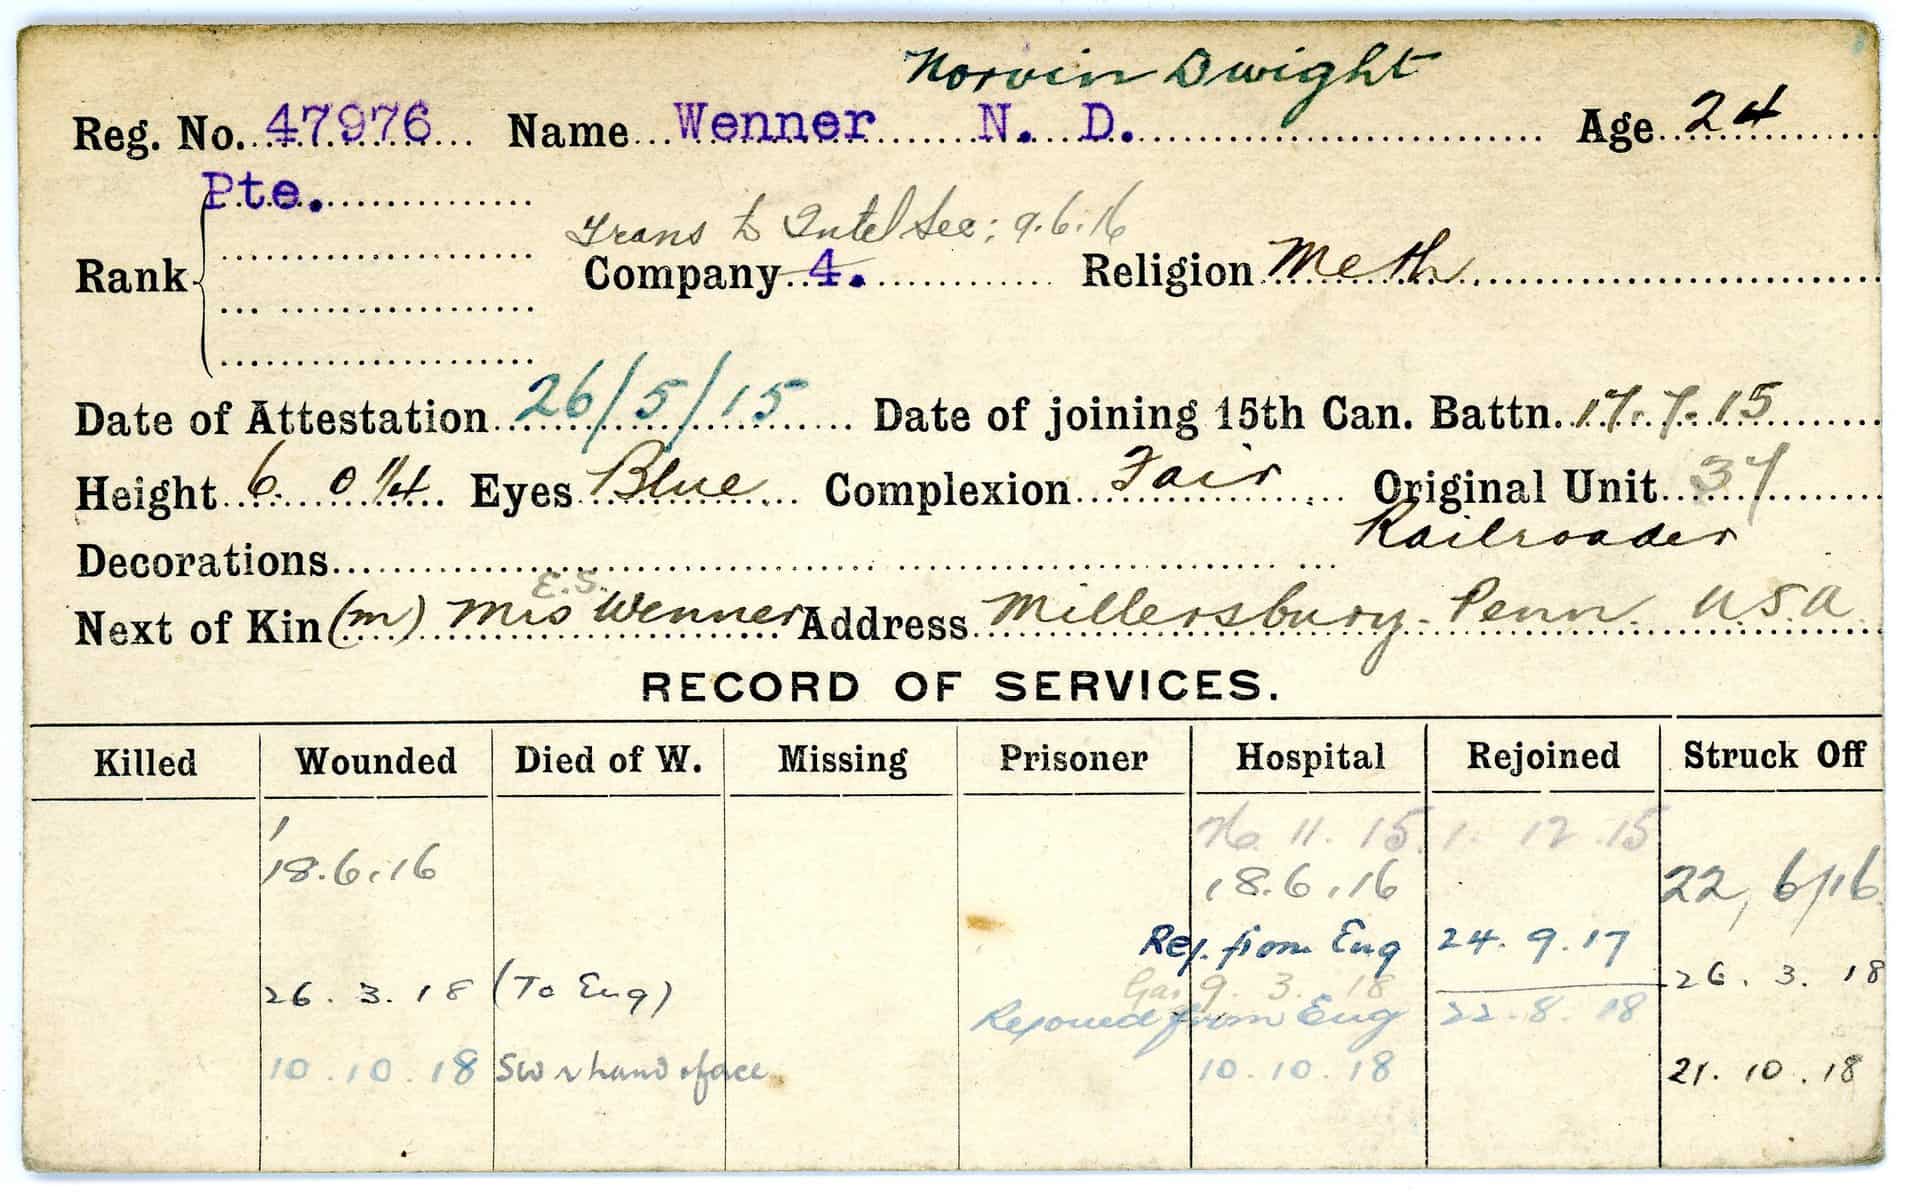 Norvin Dwight
Reg. No. 47976 Name Wenner N. D. Age 24
Pte.
Trans to Intel Sec; 9.6.16
Rank Company 4. Religion Meth
Date of Attestation 26/5/15 Date of joining 15th Can. Battn. 17.7.15
Height 6 0 1/4 Eyes Blue Complexion Fair Original Unit 37
Railroader
Decorations
E.S.
Next of Kin (m) Mrs Wenner Address Millersbury. Penn. U.S.A
RECORD OF SERVICES.
Killed Wounded Died of W. Missing Prisoner Hospital Rejoined Struck Off
26 11 15 1. 12 15
18.6.16 18.6.16 22/6/16
Rej. from Eng 24.9.17
26.3.18 (To Eng) Gas 9 3. 18 26.3.18
Rejoined from Eng 22.8.18
10.10.18 SW r hand & face 10.10.18 21.10.18